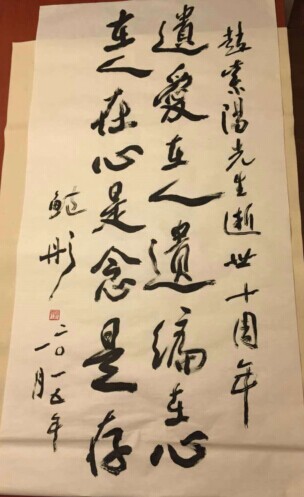 趙紫陽先生逝世十周年
遺愛在人遺編在心
在人在心是念是存
鮑彤
二〇一五年
一月